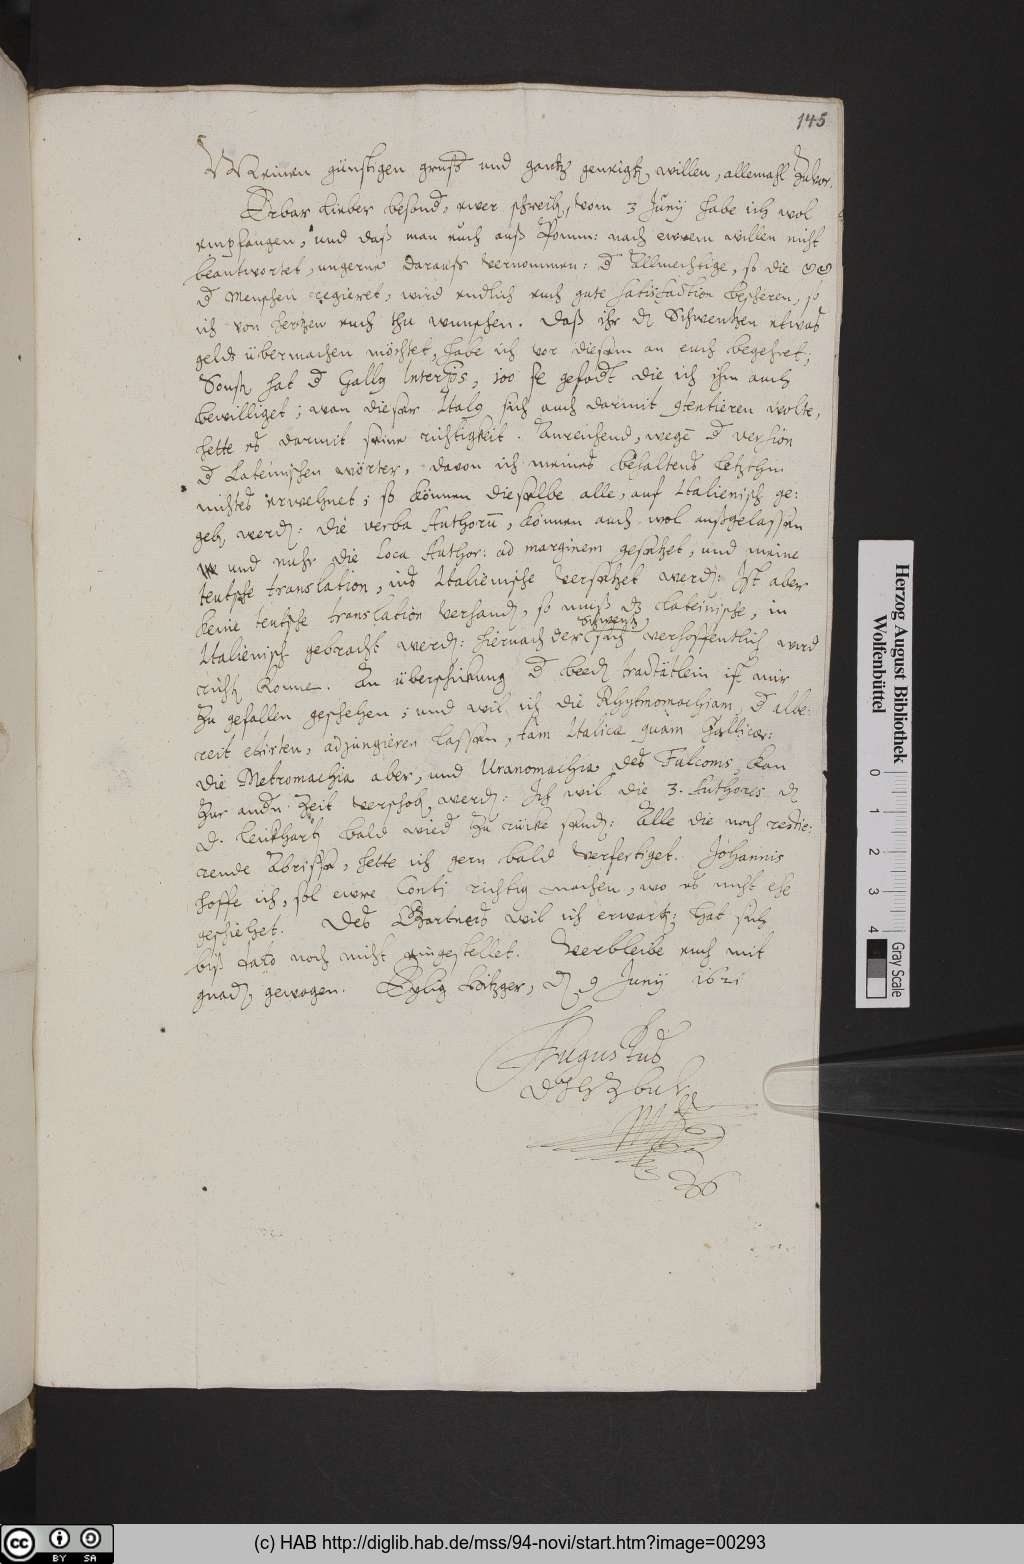 145
Meinen günstigen gruß und gantz geneigtē willen, allemahl zuvor.
Erbar lieber besond, ewer schreibē, vom 3 Junij habe ich wol
empfangen, und daß man euch auß Pomm: nach ewrem willen nicht
beantwortet, ungerne darauß vernommen: d Allmechtige, so die
d menschen regieret, wird endlich euch gute satisfaction bescheren, so
ich von hertzen euch thu wunschen. Daß ihr dē Schwenken etwas
gelds übermachen möchtet, habe ich vor diesem an euch begehret;
Sonst hat d Gally 100 gefodt die ich ihm auch
bewilliget; wan dieser Italq sich auch darmit contentieren wolte,
hette es darmit seine richtigkeit. Anreichend, wegē d version
d Lateinischen wörter, davon ich meines behaltens letzthin
nichts erwehnet; so können dieselbe alle, auf Italienisch ge:
gebē werdē: die verba Authorū, können auch wol außgelassen
und nuhr die loca Author: ad marginem gesetzet, und meine
teutsche translation, ins Italienische versetzet werdē: Ist aber
keine teutsche translation verhandē, so muß dz Lateinische, in
Italienisch gebracht werdē: hiernach der sich verhoffentlich wird
Schwenk
richtē konne. An überschickung d beedē tractätlein ist mir
zu gefallen geschehen; und wil ich die Rhytmomachiam, d albe:
reit edirten, adjungieren lassen, tam Italicæ quàm Gallicæ:
die Metromachia aber, und Uranomachia des Fulconis, kan
zur andn Zeit verschobē werdē: Ich wil die 3. Authores dē
D. Leukhartē bald wied zu rücke sendē: Alle die noch restie:
rende Abrisse, hette ich gern bald verfertiget. Johannis
hoffe ich, sol ewre Conti richtig machen, wo es nicht ehe
geschiehet. Des Gartners wil ich erwartē: hat sich
biß dato noch nicht eingestellet. Verbleibe euch mit
gnadē gewogen. Eylig Hitzger, dē 9 Junij 1621
Augustus
DJHZBUL
(c) HAB http://diglib.hab.de/mss/94-novi/start.htm?image=00293
Herzog August Bibliothek
Wolfenbüttel
0 1 2 3 4
Gray Scale
cc BY SA